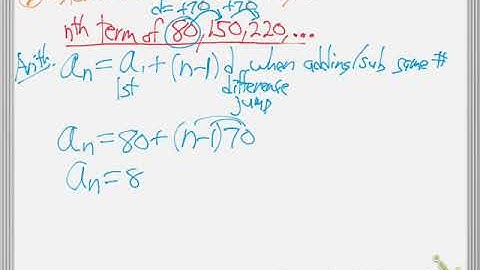 d=+70, +70
nth term of 80, 150, 220, ...
Arith. an = a1 + (n-1) d when adding/sub same #
1st difference
jump
an = 80 + (n-1)70
an = 8